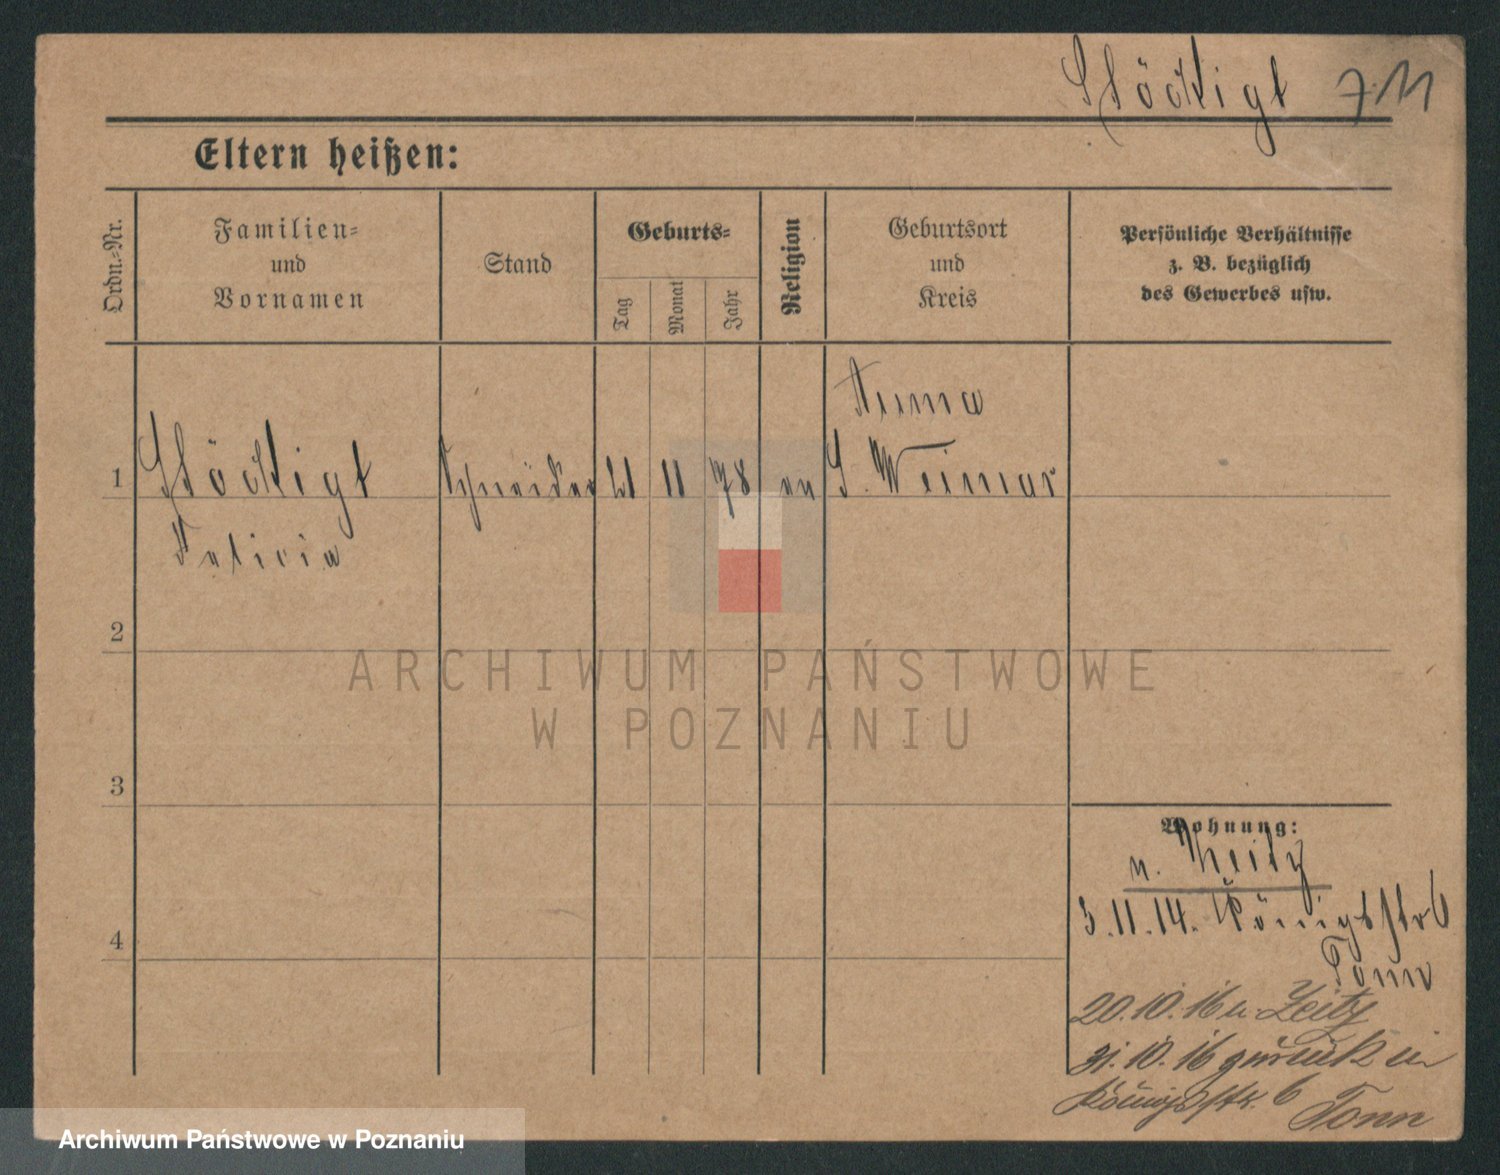 Stöckigt 7.11
Eltern heißen:
Ordn.-Nr.
Familien-
und
Vornamen
Stand
Geburts-
Tag
Monat
Jahr
Religion
Geburtsort
und
Kreis
Persönliche Verhältnisse
z. B. bezüglich
des Gewerbes usw.
1
Stöckigt
Felicia
Schneider
21
11
78
ev
S. Weimar
2
3
4
Wohnung:
n.
3.11.14. Königstr 6
Tonn
20.10.16 n. Zeitz
31.10.16 zurück in
Königstr. 6
Tonn
ARCHIWUM PAŃSTWOWE
W POZNANIU
Archiwum Państwowe w Poznaniu